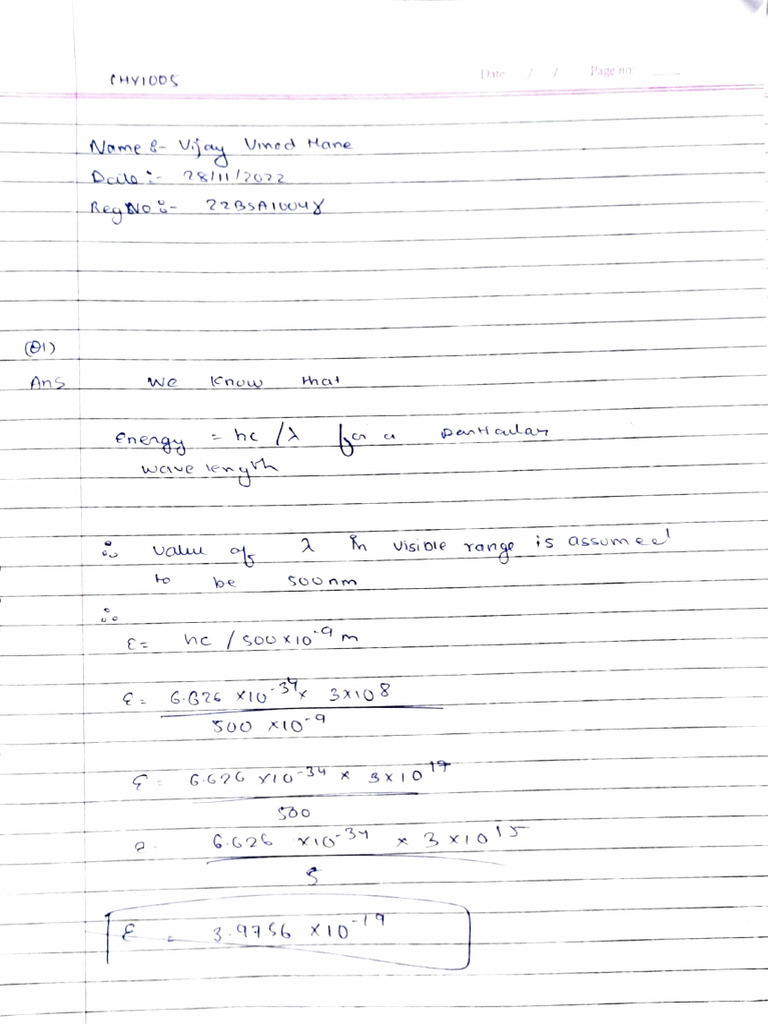 CHY1005
Date / / Page no:
Name :- Vijay Vinod Mane
Date :- 28/11/2022
Reg No :- 22BSA10048
(Q1)
Ans We know that
Energy = hc /λ for a particular
wave length
∴ value of λ in visible range is assumed
to be 500nm
∴
E = hc / 500×10⁻⁹ m
E = 6.626 ×10⁻³⁴ × 3×10⁸
500 ×10⁻⁹
E = 6.626 ×10⁻³⁴ × 3×10¹⁷
500
= 6.626 ×10⁻³⁴ × 3×10¹⁵
5
E = 3.9756 ×10⁻¹⁹